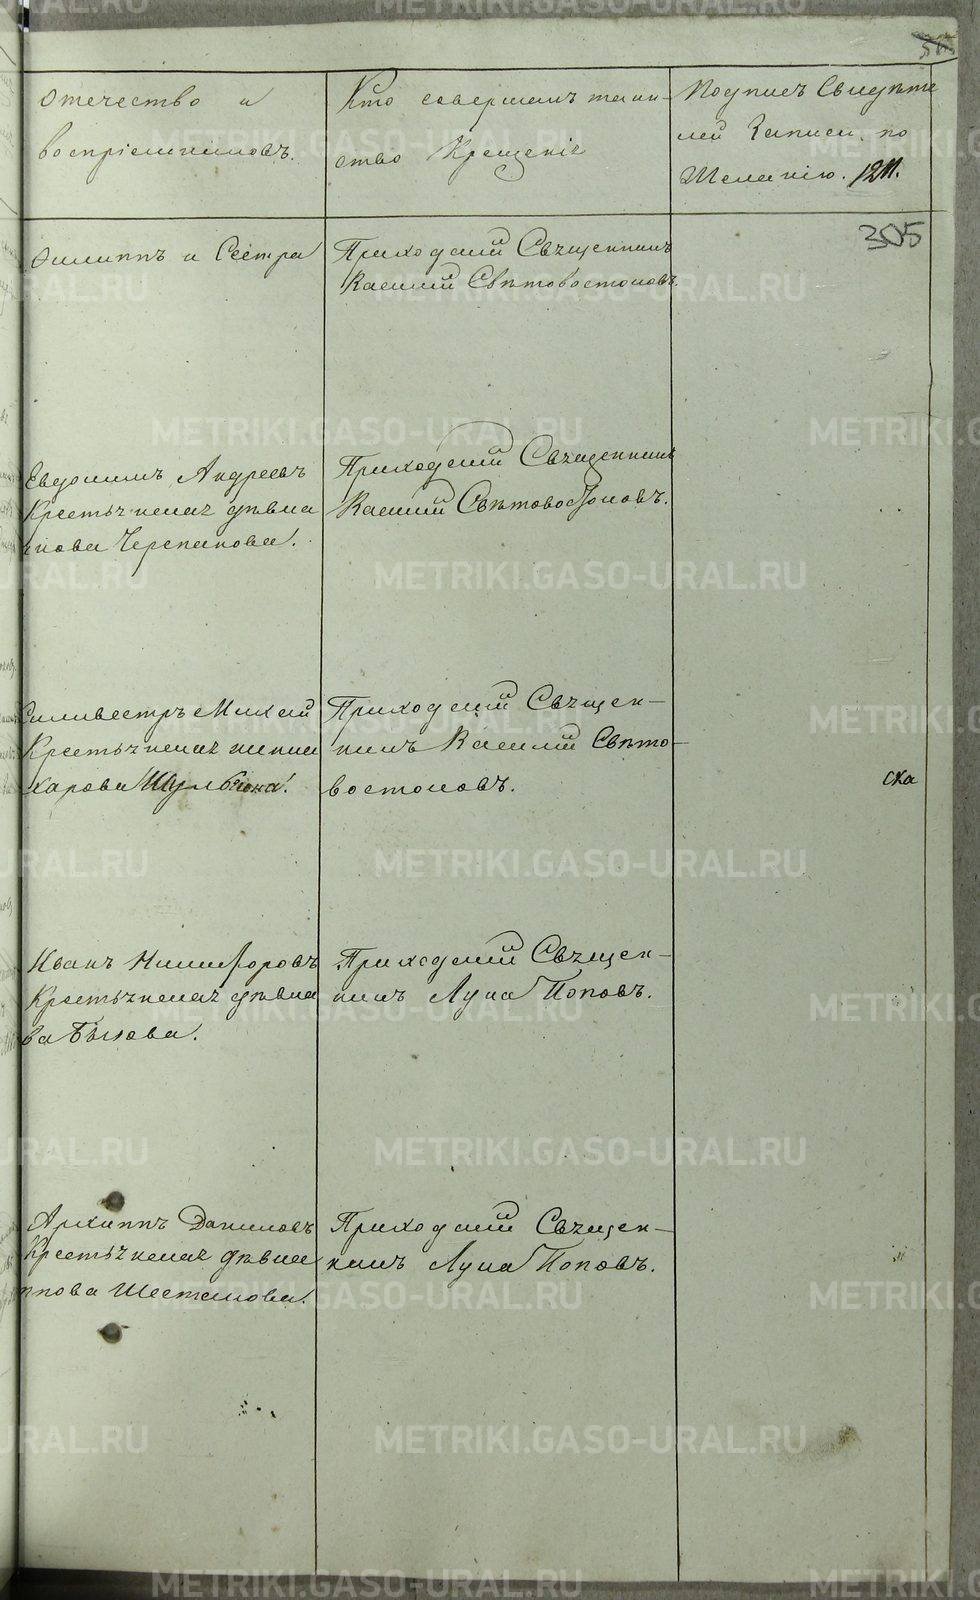 50
Отечество и
воспріемниковъ.
Кто совершалъ таин-
ство Крещенія
Подпись Свидѣте
лей Записи по
Желанію. 1211.
305
Филиппъ и Сестра
Приходскій Священникъ
Василій Свѣтовостоковъ.
Евдокимъ Андреевъ
Крестьянская дѣвица
Черепанова.
Приходскій Священникъ
Василій Свѣтовостоковъ.
Силивестръ Михай
Крестьянская
харова
Приходскій Священ-
никъ Василій Свѣто-
востоковъ.
ска
Иванъ Никифоровъ
Крестьянская дѣвица
ва Быкова.
Приходскій Священ-
никъ Лука Поповъ.
Архиппъ Даниловъ
Крестьянская дѣвица
ппова Шестакова.
Приходскій Священ-
никъ Лука Поповъ.
METRIKI.GASO-URAL.RU